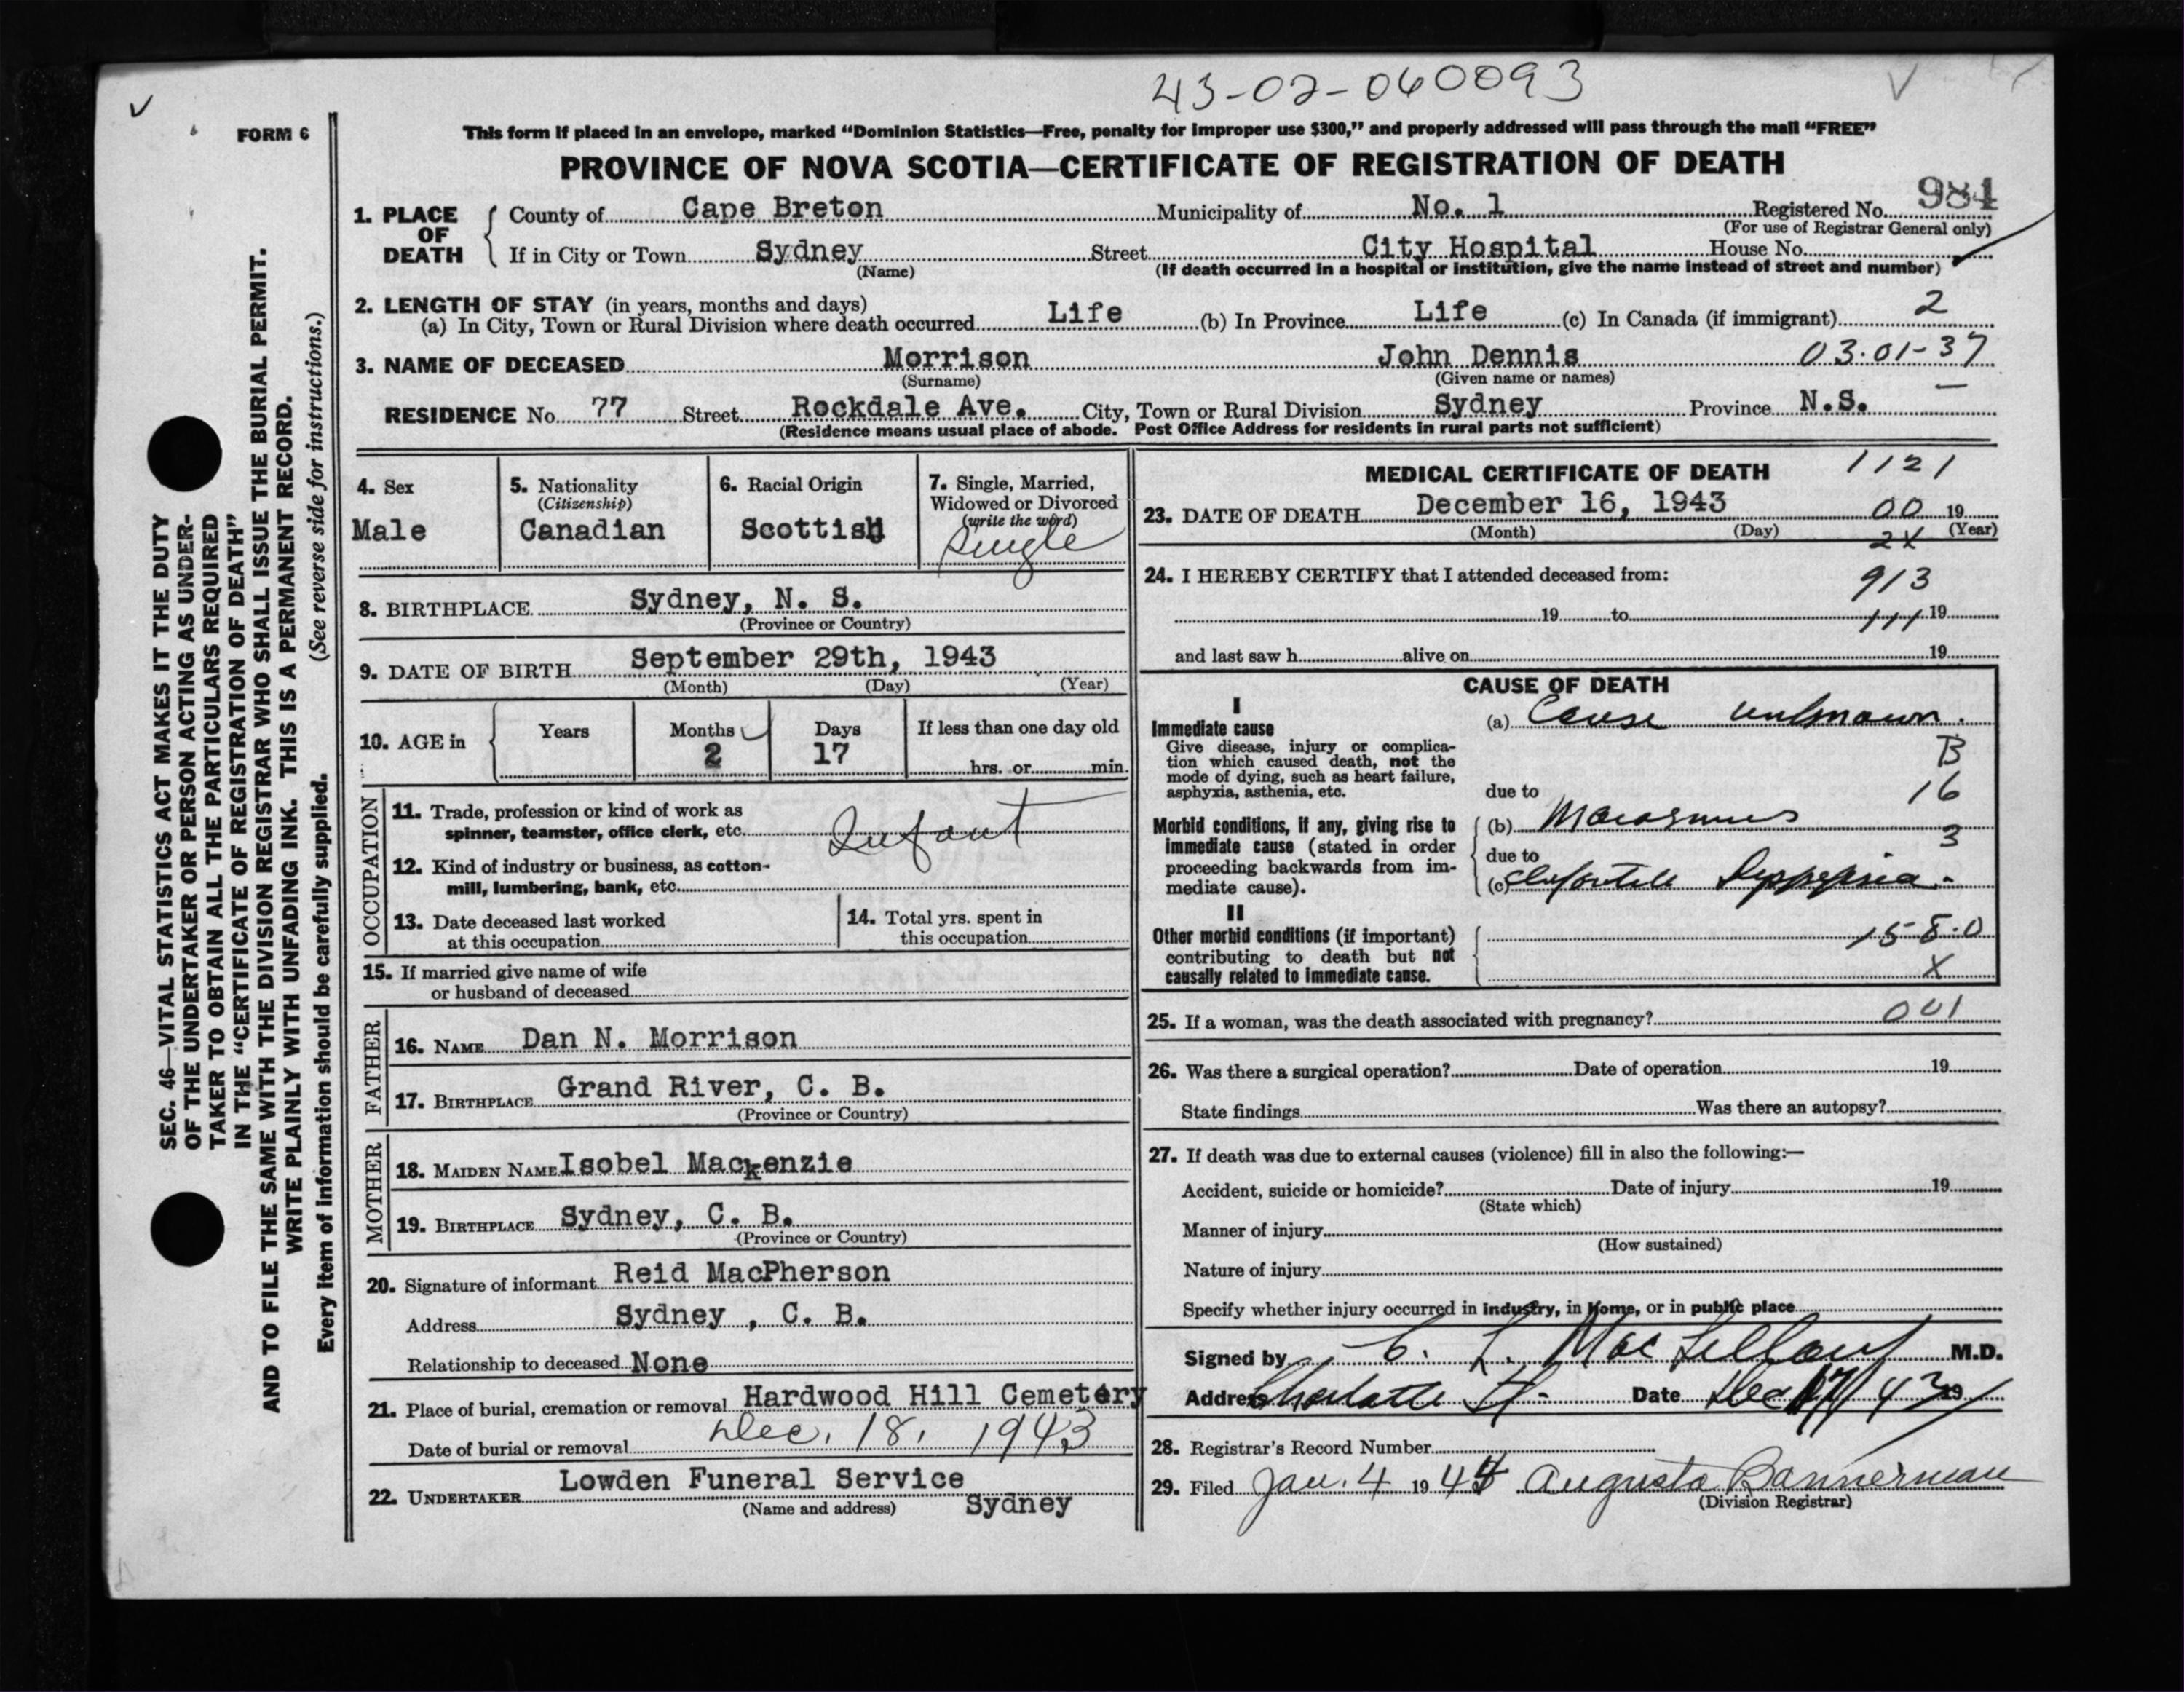 43-02-060093
FORM 6
This form if placed in an envelope, marked “Dominion Statistics—Free, penalty for improper use $300,” and properly addressed will pass through the mail “FREE”
PROVINCE OF NOVA SCOTIA—CERTIFICATE OF REGISTRATION OF DEATH
984
1. PLACE OF DEATH
County of Cape Breton Municipality of No. 1 Registered No.
(For use of Registrar General only)
If in City or Town Sydney Street City Hospital House No.
(Name) (If death occurred in a hospital or institution, give the name instead of street and number)
2. LENGTH OF STAY (in years, months and days)
(a) In City, Town or Rural Division where death occurred Life (b) In Province Life (c) In Canada (if immigrant) 2
3. NAME OF DECEASED Morrison John Dennis 03.01-37
(Surname) (Given name or names)
RESIDENCE No. 77 Street Rockdale Ave. City, Town or Rural Division Sydney Province N.S. —
(Residence means usual place of abode. Post Office Address for residents in rural parts not sufficient)
4. Sex
Male
5. Nationality
(Citizenship)
Canadian
6. Racial Origin
Scottish
7. Single, Married,
Widowed or Divorced
(write the word)
Single
8. BIRTHPLACE Sydney, N. S.
(Province or Country)
9. DATE OF BIRTH September 29th, 1943
(Month) (Day) (Year)
10. AGE in
Years Months Days If less than one day old
2 17 hrs. or min.
OCCUPATION
11. Trade, profession or kind of work as
spinner, teamster, office clerk, etc. Infant
12. Kind of industry or business, as cotton-
mill, lumbering, bank, etc.
13. Date deceased last worked
at this occupation
14. Total yrs. spent in
this occupation
15. If married give name of wife
or husband of deceased
FATHER
16. NAME Dan N. Morrison
17. BIRTHPLACE Grand River, C. B.
(Province or Country)
MOTHER
18. MAIDEN NAME Isobel Mackenzie
19. BIRTHPLACE Sydney, C. B.
(Province or Country)
20. Signature of informant Reid MacPherson
Address Sydney , C. B.
Relationship to deceased None
21. Place of burial, cremation or removal Hardwood Hill Cemetery
Date of burial or removal Dec. 18, 1943
22. UNDERTAKER Lowden Funeral Service
(Name and address) Sydney
MEDICAL CERTIFICATE OF DEATH 1121
23. DATE OF DEATH December 16, 1943 00 19
(Month) (Day) (Year)
2X
24. I HEREBY CERTIFY that I attended deceased from: 913
19 to 111 19
and last saw h alive on 19
CAUSE OF DEATH
I
Immediate cause
Give disease, injury or complica-
tion which caused death, not the
mode of dying, such as heart failure,
asphyxia, asthenia, etc.
(a) Cause unknown.
B
due to 16
Morbid conditions, if any, giving rise to
immediate cause (stated in order
proceeding backwards from im-
mediate cause).
(b) Marasmus
3
due to
(c) Infantile Dyspepsia.
II
Other morbid conditions (if important)
contributing to death but not
causally related to immediate cause.
158.0
X
25. If a woman, was the death associated with pregnancy? 001
26. Was there a surgical operation? Date of operation 19
State findings Was there an autopsy?
27. If death was due to external causes (violence) fill in also the following:—
Accident, suicide or homicide? Date of injury 19
(State which)
Manner of injury
(How sustained)
Nature of injury
Specify whether injury occurred in industry, in home, or in public place
Signed by C. L. MacLellan M.D.
Address Charlotte St. Date Dec 17/43 19
28. Registrar's Record Number
29. Filed Jan. 4 1944 Augusta Bannerman
(Division Registrar)
SEC. 46—VITAL STATISTICS ACT MAKES IT THE DUTY
OF THE UNDERTAKER OR PERSON ACTING AS UNDER-
TAKER TO OBTAIN ALL THE PARTICULARS REQUIRED
IN THE “CERTIFICATE OF REGISTRATION OF DEATH”
AND TO FILE THE SAME WITH THE DIVISION REGISTRAR WHO SHALL ISSUE THE BURIAL PERMIT.
WRITE PLAINLY WITH UNFADING INK. THIS IS A PERMANENT RECORD.
Every item of information should be carefully supplied. (See reverse side for instructions.)